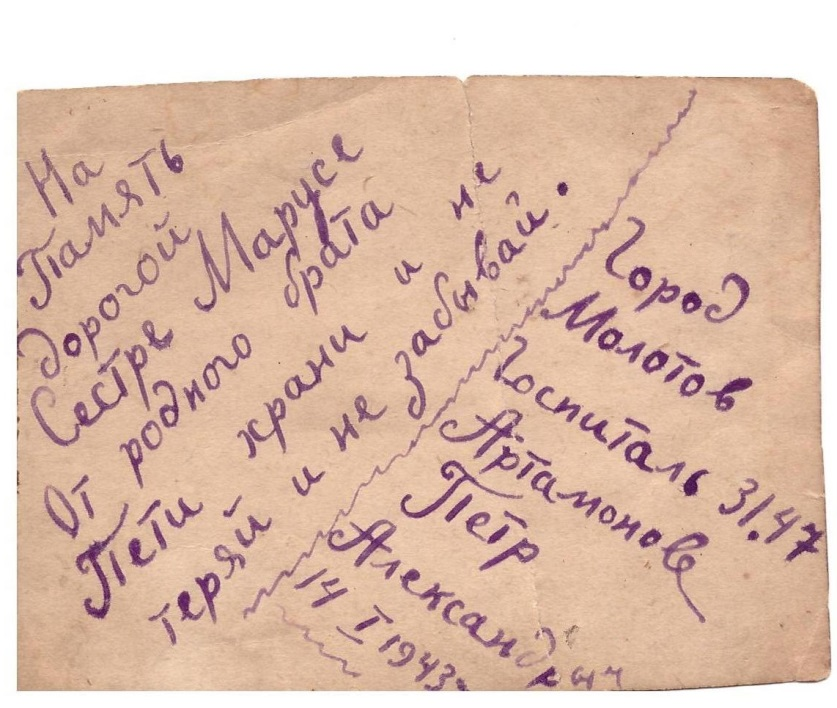 На
Память
дорогой
Сестре Марусе
От родного брата
Пети храни и не
теряй и не забывай.
Город
Молотов
Госпиталь 31.47
Артамонов
Петр
Александрыч
14 I 1943